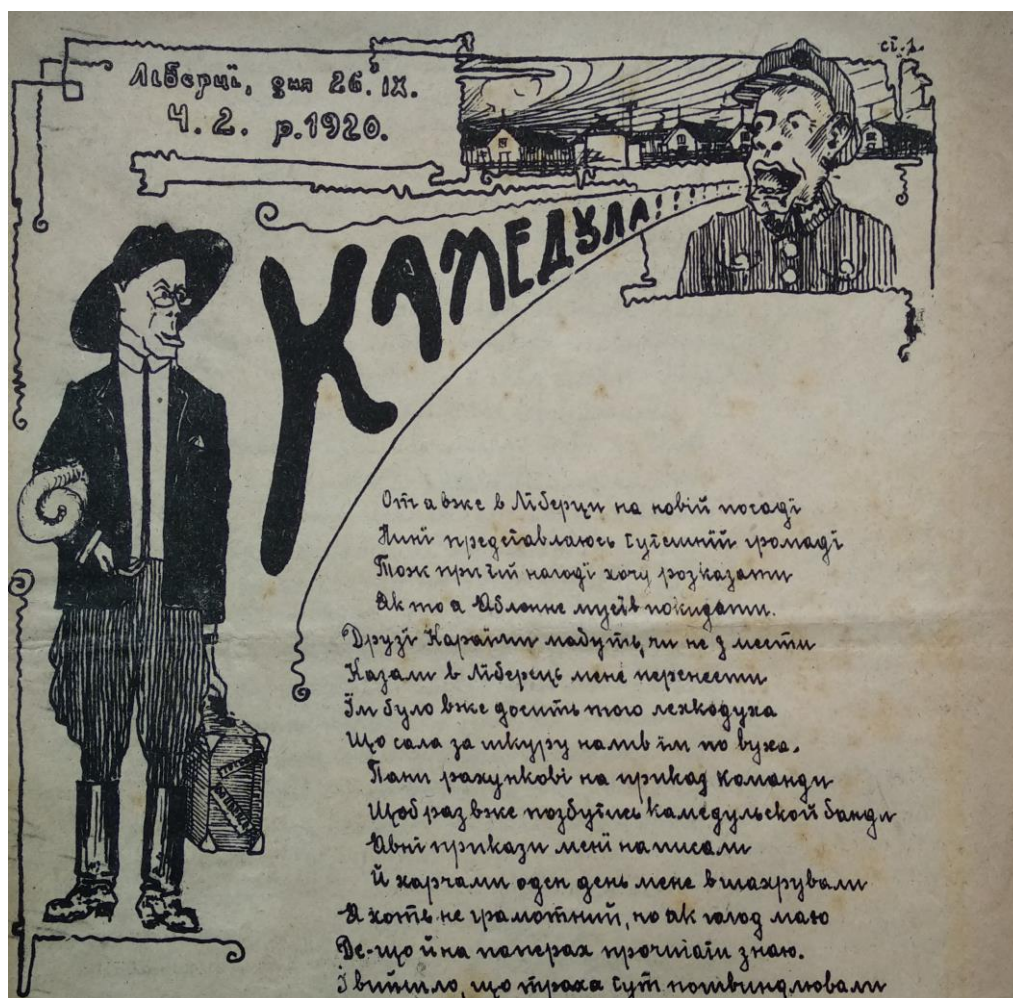 Ліберці, дня 26. IX.
Ч. 2. р. 1920.
ст. 1.
КАМЕДУЛА!!!!!!
От а вже в Ліберци на новій посаді
Нині представлаюсь тутешній громаді
Тож при тій нагоді хочу розказати
Як то а Яблонне мусів покидати.
Друзі Караїми мабуть, чи не з мести
Казали в Ліберець мене перенести
Їм було вже досить того лехкодуха
Що сала за шкуру налив їм по вуха.
Пани рахункові на приказ команди
Щоб раз вже позбутись камедульскої банди
Явні прикази мені написали
Й харчами оден день мене вшахрували
Я хоть не грамотний, но як голод маю
Де-що й на паперах прочитати знаю.
І вийшло, що траха тут пошвиндлювали